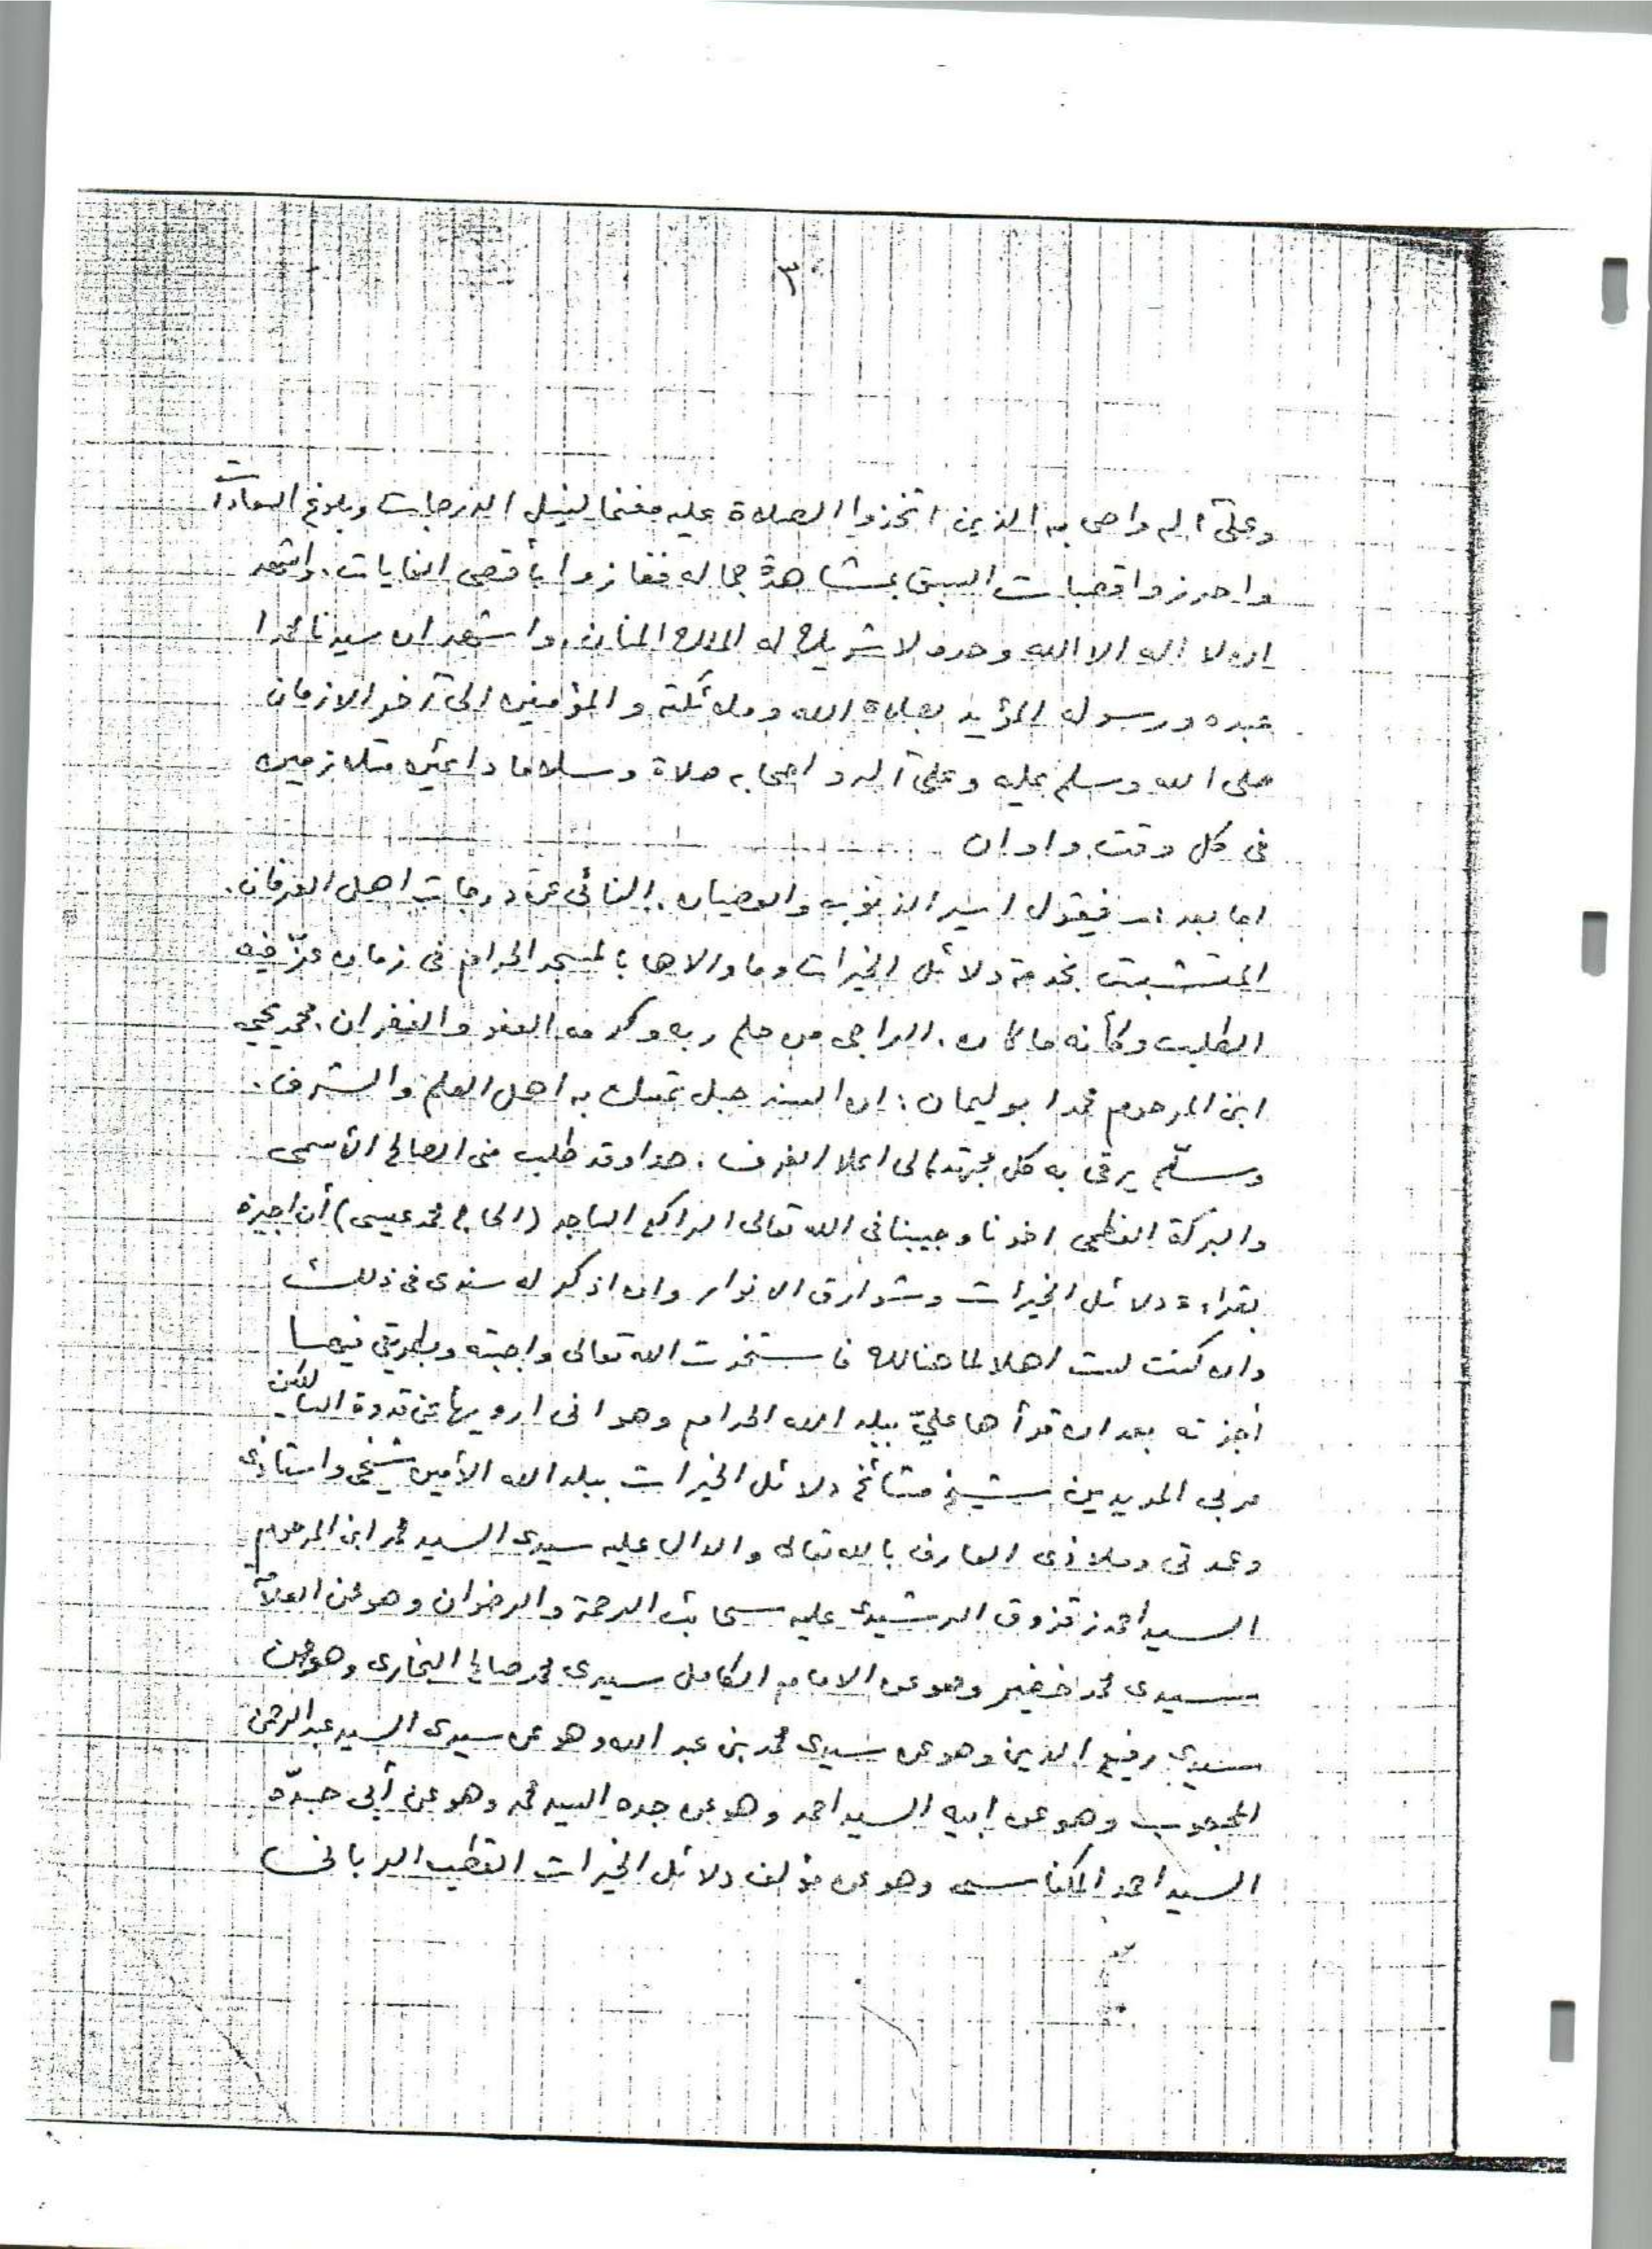 ٣
وعلى آله واصحابه الذين اتخذوا الصلاة عليه مغنما لنيل الدرجات وبلوغ السعادات
واحرزوا قصبات السبق بمشاهدة جماله ففازوا بأقصى الغايات. واشهد
ان لا اله الا الله وحده لا شريك له الملك المنان. واشهد ان سيدنا محمدا
عبده ورسوله المؤيد بصلاة الله وملائكته والمؤمنين الى آخر الازمان
صلى الله وسلم عليه وعلى آله واصحابه صلاة وسلاما دائمين متلازمين
فى كل وقت واوان
اما بعد :- فيقول اسير الذنوب والعصيان. النائى عن درجات اهل العرفان.
المتشبث بخدمة دلائل الخيرات وما والاها بالمسجد الحرام فى زمان عزّ فيه
الطلب وكأنه ما كان. الراجى من حلم ربه وكرمه العفو والغفران. محمد يحيى
ابن المرحوم محمد ابو ليمان : ان السند حبل تمسك به اهل العلم والشرف.
وسلّم يرقى به كل مجتهد الى اعلا الغرف. هذا وقد طلب منى الصالح الأسمى
والبركة العظمى اخونا وحبيبنا فى الله تعالى الراكع الساجد (الحاج محمد عيسى) أن اجيزه
بقراءة دلائل الخيرات وشوارق الانوار وان اذكر له سندى فى ذلك
وان كنت لست اهلا لما هنالك فاستخرت الله تعالى واجبته وبطريقى فيهما
أجزته بعد ان قرأها عليّ ببلد الله الحرام وهو انى ارويها عن قدوة السالكين
مربى المريدين شيخ مشائخ دلائل الخيرات ببلد الله الأمين شيخى واستاذى
وعدتى وملاذى العارف بالله تعالى والدال عليه سيدى السيد محمد ابن المرحوم
السيد احمد زقزوق الرشيدى عليه سحائب الرحمة والرضوان وهو عن العلامة
سيدى محمد خضير وهو عن الامام الكامل سيدى محمد صالح البخارى وهو عن
سيدى رفيع الدين وهو عن سيدى محمد بن عبد الله وهو عن سيدى السيد عبد الرحمن
المحجوب وهو عن ابيه السيد احمد وهو عن جده السيد محمد وهو عن أبى جدّه
السيد احمد المكناسى وهو عن مؤلف دلائل الخيرات القطب الربانى